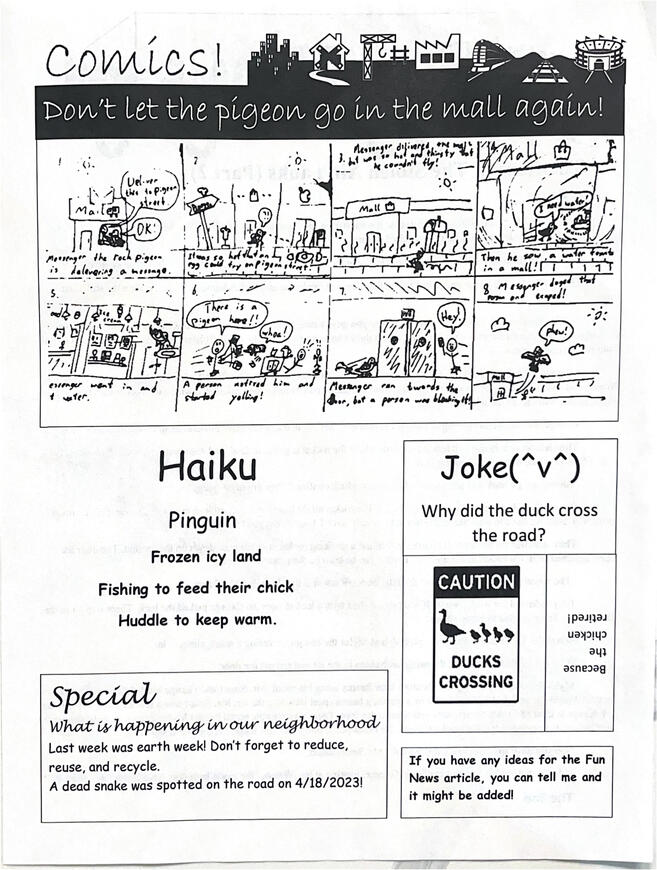 Comics!
Don't let the pigeon go in the mall again!
1.
Deliver
this to pigeon
street.
OK!
Messenger the rock pigeon
is delevering a message.
2
It was so hot that an
egg could fry on pigeon street.
3. Messenger delivered and mail,
but was so hot and thirsty that
he couldn't fly!
Mall
4.
Mall
I need water!
Then he saw a water
in a mall!
5.
ice
cream
essenger went in and
t water.
6.
There is a
pigeon here!!
whoa!
A person noticed him and
started yelling!
7.
Hey!
Messenger ran twords the
door, but a person was blocking it!
8. Messenger doged that
and escaped!
phew!
Mall
Haiku
Pinguin
Frozen icy land
Fishing to feed their chick
Huddle to keep warm.
Joke(^v^)
Why did the duck cross
the road?
CAUTION
DUCKS
CROSSING
Because
the
chicken
retired!
Special
What is happening in our neighborhood
Last week was earth week! Don't forget to reduce,
reuse, and recycle.
A dead snake was spotted on the road on 4/18/2023!
If you have any ideas for the Fun
News article, you can tell me and
it might be added!